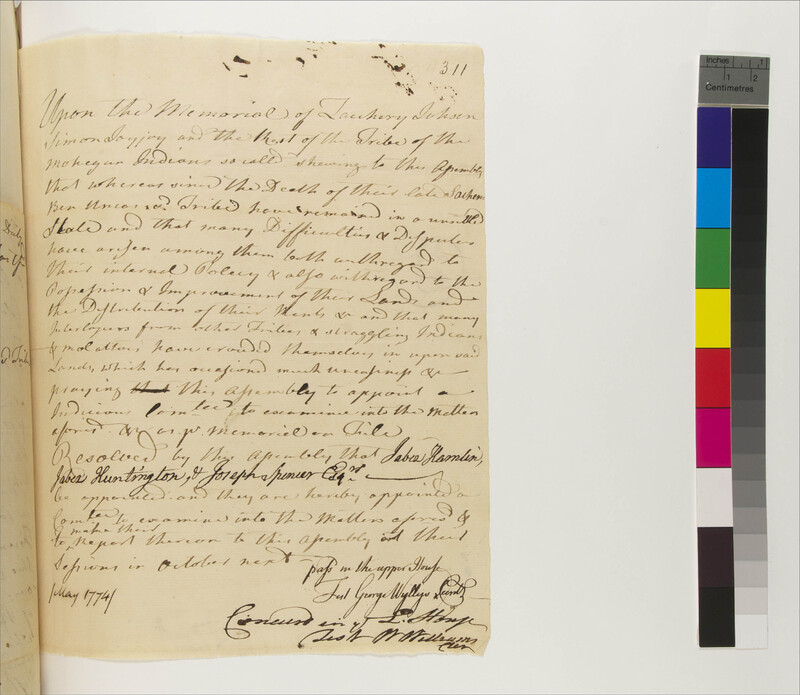 311
Upon the Memorial of Zachery Johson
Simon Joyjoy and the Rest of the Tribe of the
Mohegan Indians so called shewing to this Assembly
that whereas since the Death of their late Sachem
Ben Uncas sd. Tribe have remained in a unsettled
State and that many Difficulties & Disputes
have arisen among them both with regard to
their internal Policy & also with regard to the
Possession & Improvement of their Lands and
the Distribution of their Rents &c and that many
Interlopers from other Tribes & straggling Indians
& molattoes have crouded themselves in upon said
Lands, which has occasiond much uneasiness &c
praying that this Assembly to appoint a
Judicious Comtee to examine into the Matters
aforesd. &c as pr. Memorial on File
Resolved by this Assembly that Jabez Hamlin,
Jabez Huntington, & Joseph Spencer Esqrs
be appointed and they are hereby appointed a
Comtee to examine into the Matters aforesd &
to make their Report thereon to this Assembly at their
Sessions in October next
passd in the upper House
Test George Wyllys Secretr
May 1774
Concurd in ye L. House
Test W Williams
Cler
Inches 1
1 2
Centimetres